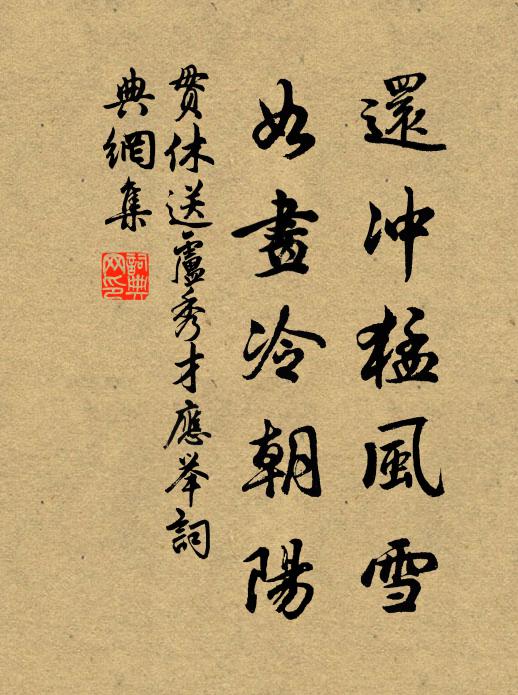 還冲猛風雪
如畫冷朝陽
貫休送盧秀才應举詞
典網集
詞典網印